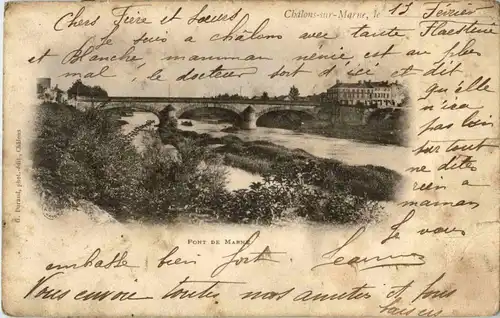 Châlons-sur-Marne, le 13 Février
Chers Frère et Sœurs
Je suis à châlons avec tante
et Blanche, maman nénie est au plus
mal, le docteur sort d'ici et dit
qu'elle
n'ira
pas loin
surtout
ne dites
rien à
maman
Je
vous
embrasse bien fort Jeanne
Vous envoie toutes nos amitiés et tous
baisers
PONT DE MARNE
phot.-édit., Châlons